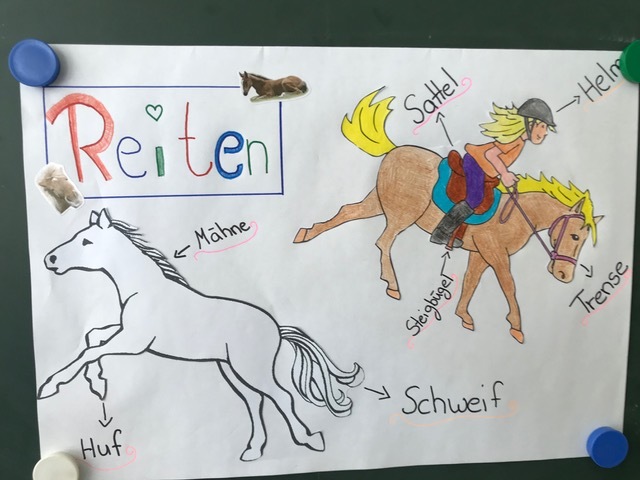 Reiten
Sattel
Helm
Mähne
Steigbügel
Trense
Schweif
Huf